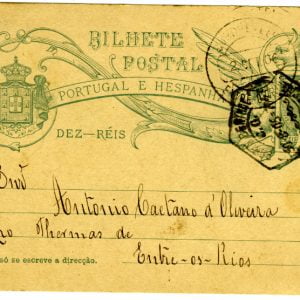 BILHETE
POSTAL
PORTUGAL E HESPANHA
DEZ-RÉIS
Antonio Caetano d'Oliveira
Thermas de
Entre-os-Rios
só se escreve a direcção.